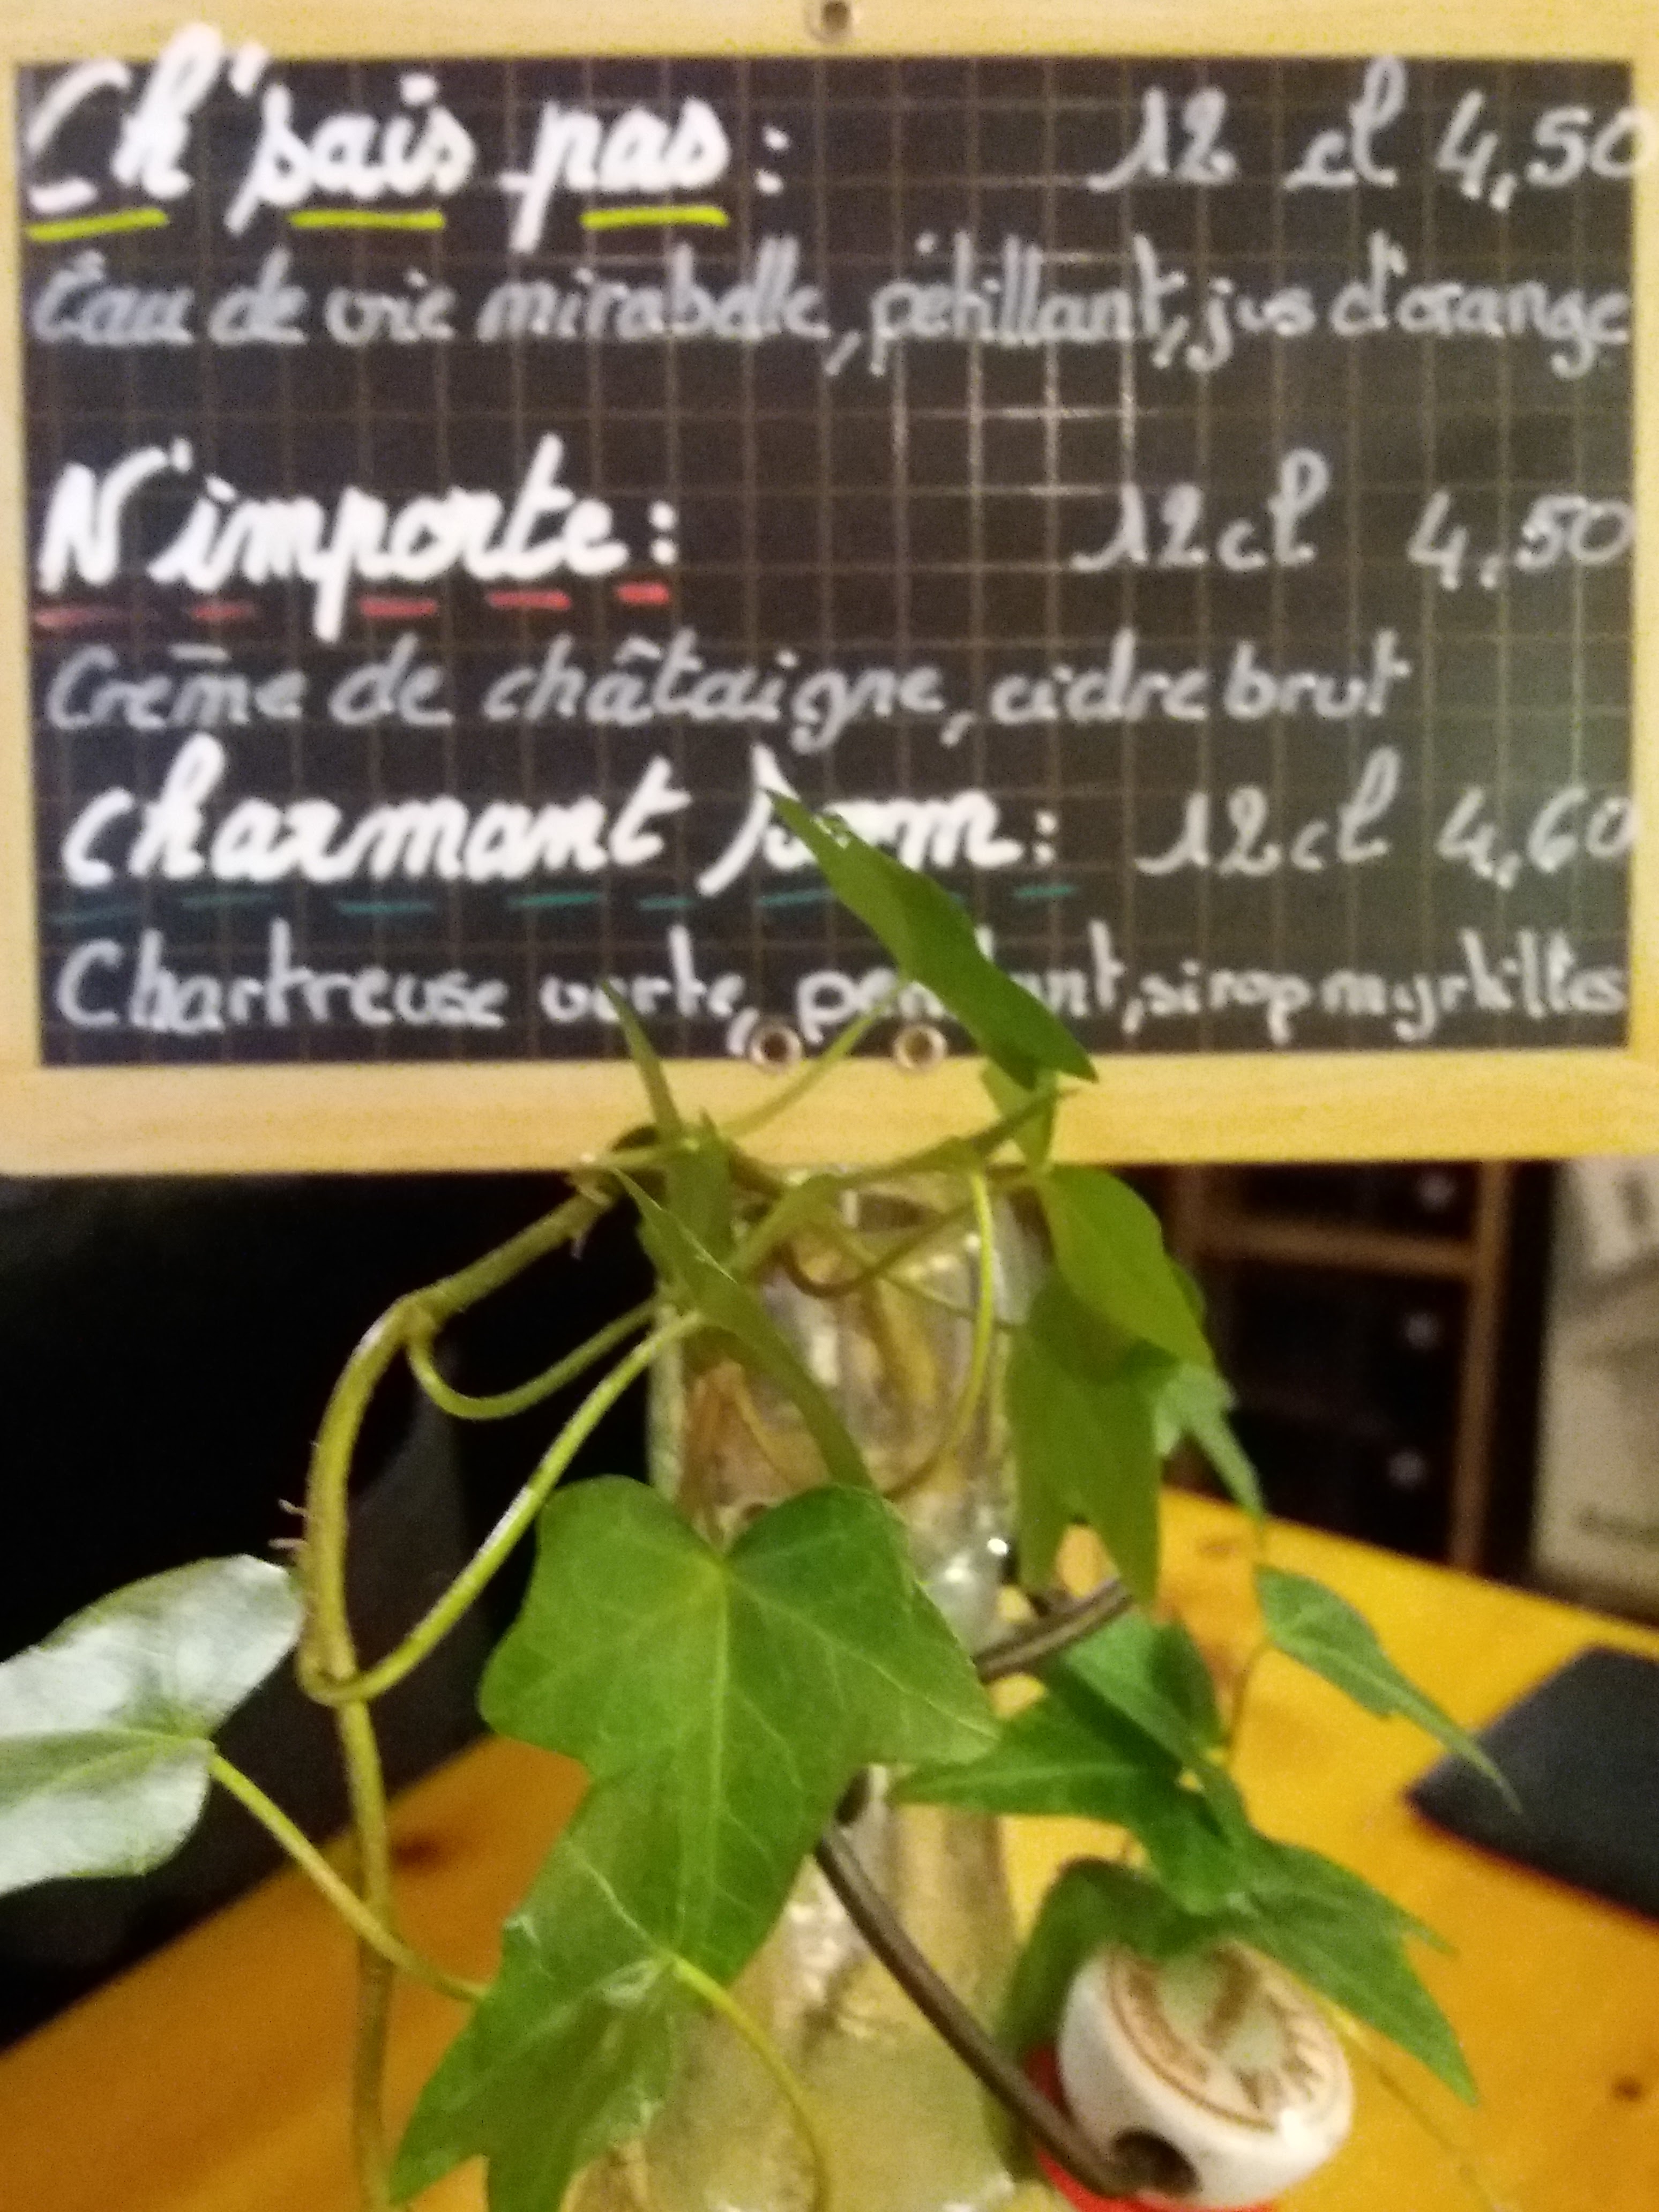 Ch'sais pas : 12 cl 4,50
Eau de vie mirabelle, pétillant, jus d'orange
N'importe : 12cl 4,50
Crème de châtaigne, cidre brut
Charmant : 12cl 4,60
Chartreuse verte, sirop myrtilles